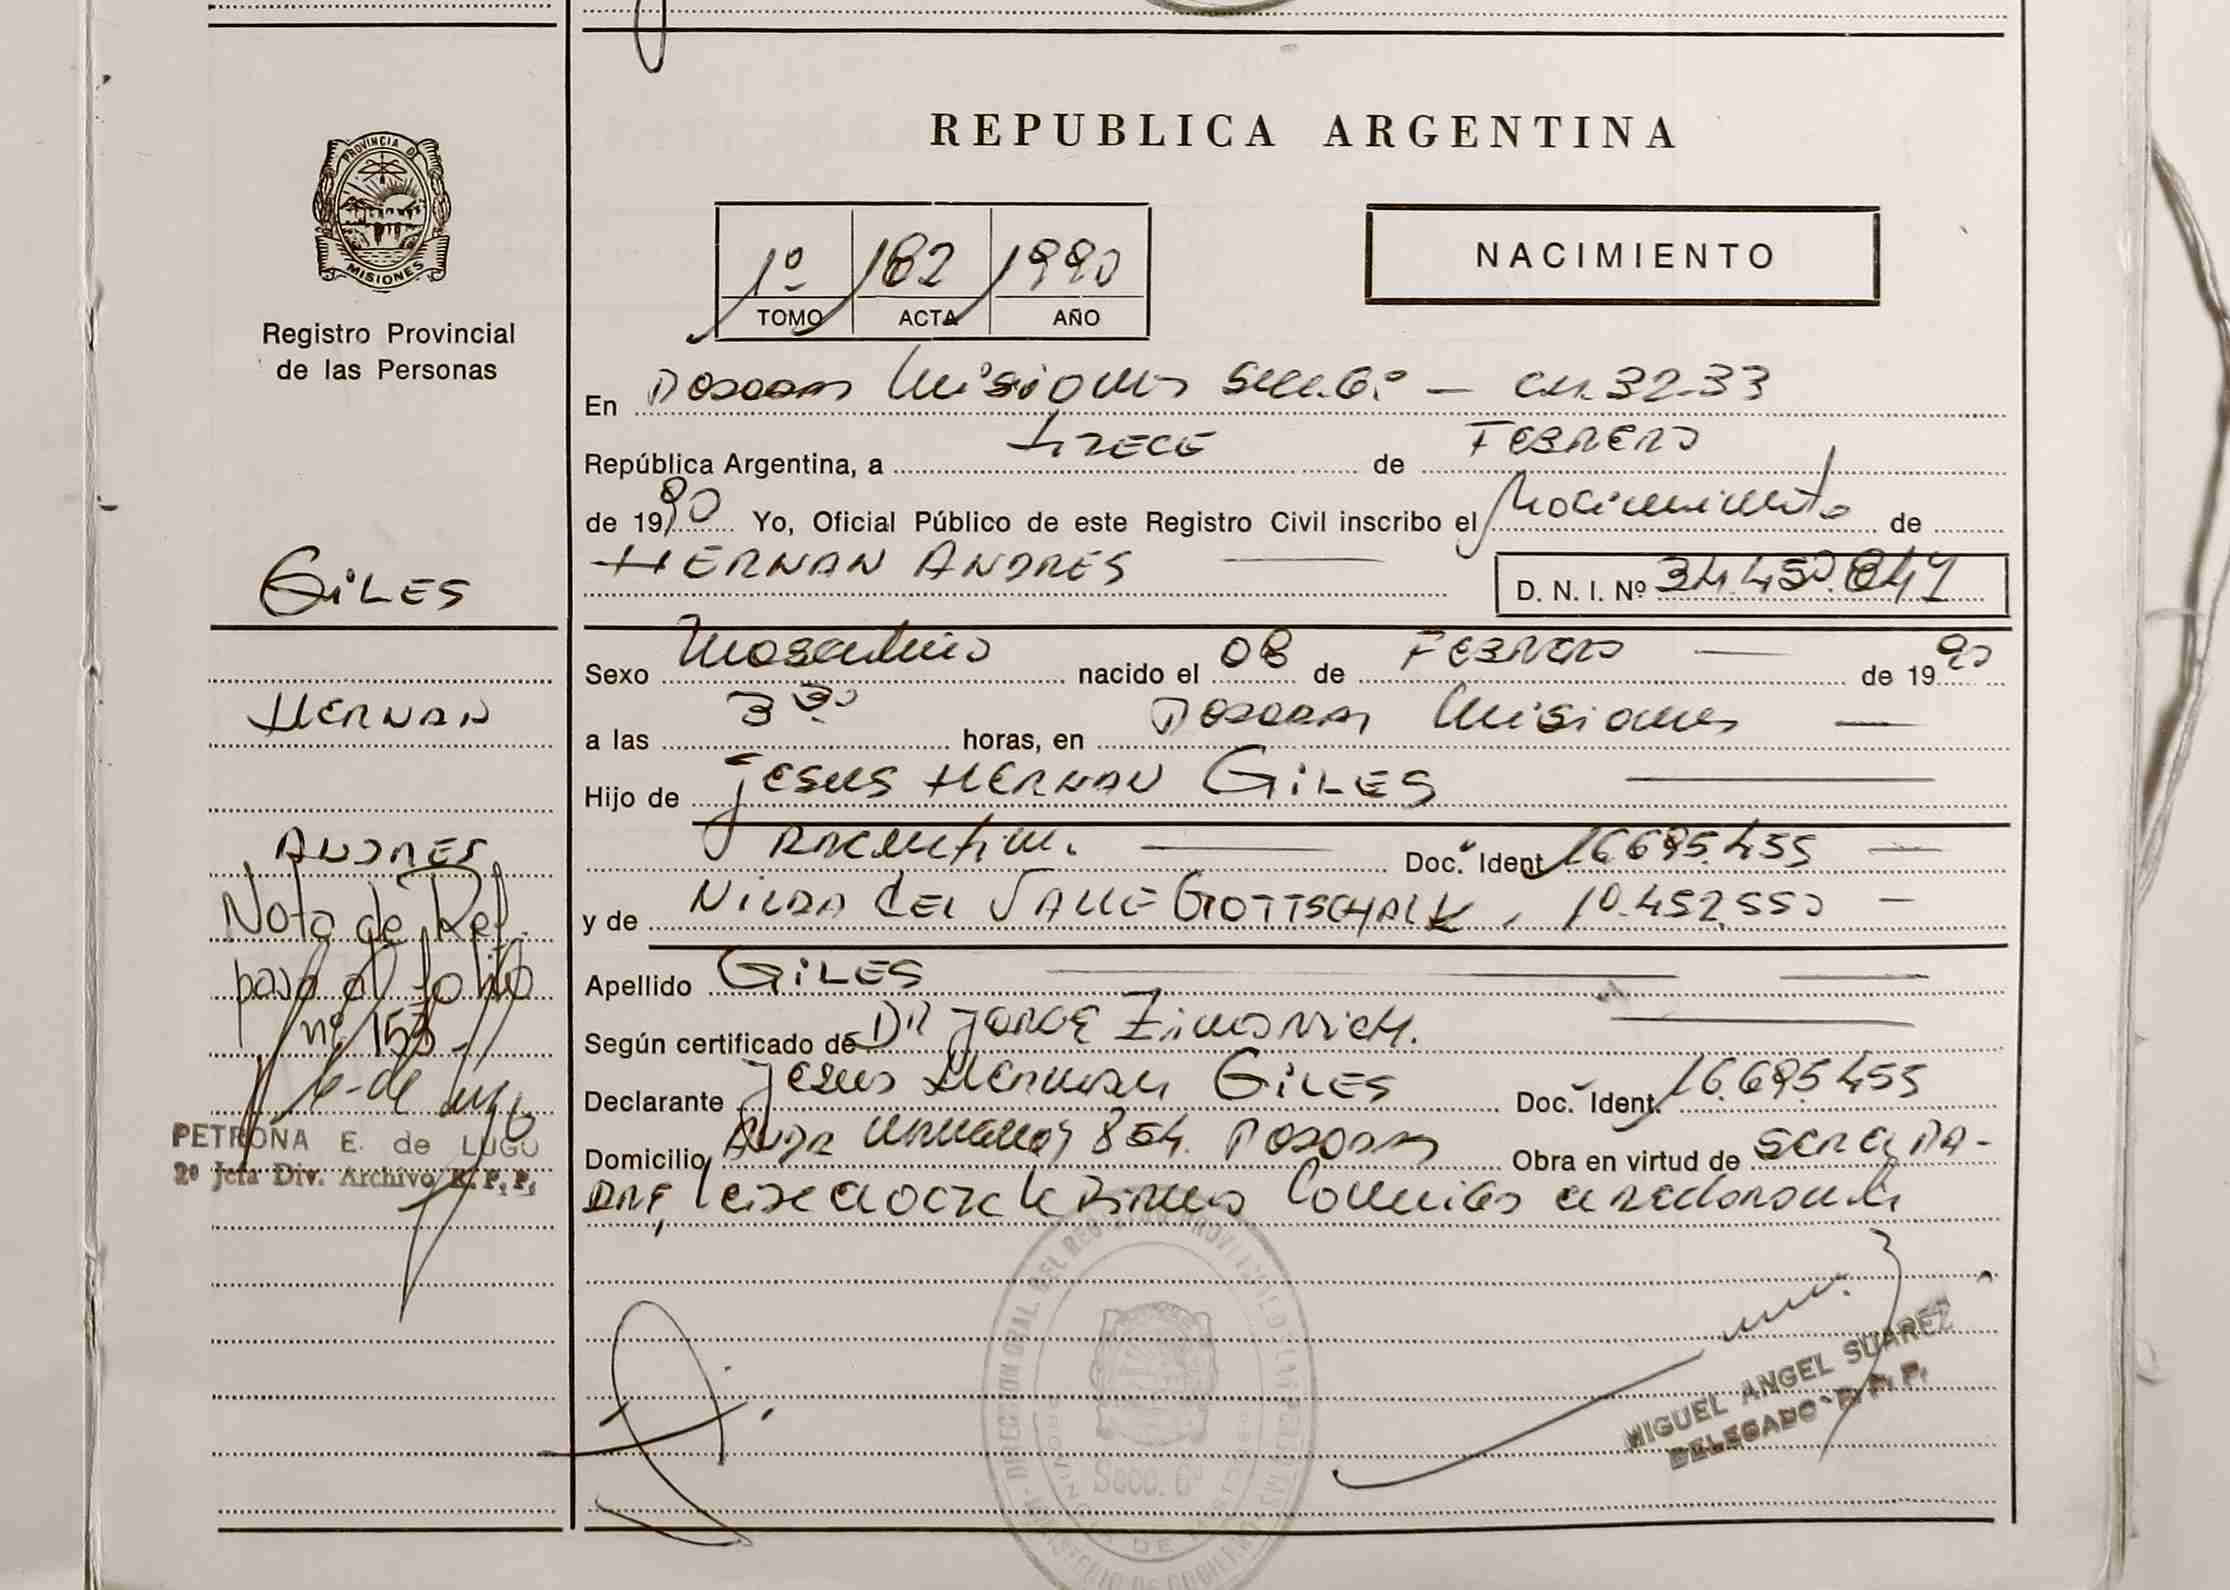 PROVINCIA DE
MISIONES
Registro Provincial
de las Personas
GILES
HERNAN
ANDRES
Nota de Ref.
pasa al folio
nº 153
PETRONA E. de LUGO
2º Jefa Div. Archivo R. P. P.
REPUBLICA ARGENTINA
1º 182 1990
TOMO ACTA AÑO
NACIMIENTO
En Posadas Misiones Secc. 6º — 32-33
República Argentina, a trece de FEBRERO
de 1990 Yo, Oficial Público de este Registro Civil inscribo el Nacimiento de
HERNAN ANDRES
D. N. I. Nº
Sexo Masculino nacido el 08 de FEBRERO — de 1990
a las 3 horas, en Posadas Misiones —
Hijo de JESUS HERNAN GILES
Doc. Ident. 16.695.455 —
y de NILDA DEL VALLE GOTTSCHALK, 10.452.550 —
Apellido GILES
Según certificado de DR JORGE
Declarante Jesus Hernan GILES Doc. Ident. 16.695.455
Domicilio Avda 854. Posadas Obra en virtud de SER EL PA-
DRE,
DIRECCION GRAL. DEL REGISTRO PROVINCIAL DE LAS PERSONAS
Secc. 6ª
PROVINCIA DE MISIONES
MINISTERIO DE GOBIERNO
MIGUEL ANGEL SUAREZ
DELEGADO R. P. P.